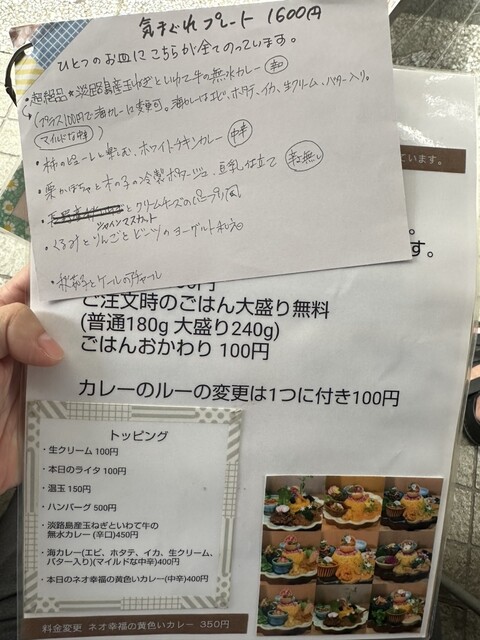 気まぐれプレート 1600円
ひとつのお皿にこちらが全てのっています。
・超絶品★淡路島産玉ねぎといわて牛の無水カレー 辛口
(プラス100円で海カレーに変更可。海カレーはエビ、ホタテ、イカ、生クリーム、バター入り。
マイルドな中辛)
・柿のピューレと楽しむ、ホワイトチキンカレー 中辛
・栗かぼちゃと木の子の冷製ポタージュ 豆乳仕立て 辛み無し
とクリームチーズの
シャインマスカット
・くるみとりんごとビーンズのヨーグルト和え
・秋茄子とケールのアチャール
ています。
。
す。
円
ご注文時のごはん大盛り無料
(普通180g 大盛り240g)
ごはんおかわり 100円
カレーのルーの変更は1つに付き100円
トッピング
・生クリーム 100円
・本日のライタ 100円
・温玉 150円
・ハンバーグ 500円
・淡路島産玉ねぎといわて牛の
無水カレー (辛口)450円
・海カレー(エビ、ホタテ、イカ、生クリーム、
バター入り)(マイルドな中辛)400円
・本日のネオ幸福の黄色いカレー(中辛)400円
料金変更 ネオ幸福の黄色いカレー 350円